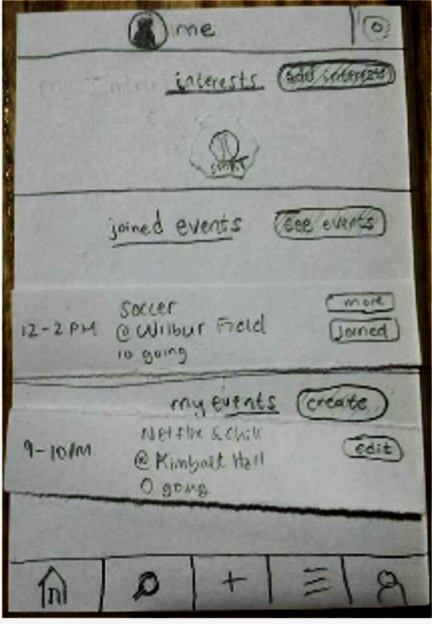 me
interests add interests
sport
joined events see events
12-2 PM
Soccer
@ Wilbur Field
10 going
more
joined
my events create
9-10PM
Netflix & Chill
@ Kimball Hall
0 going
edit